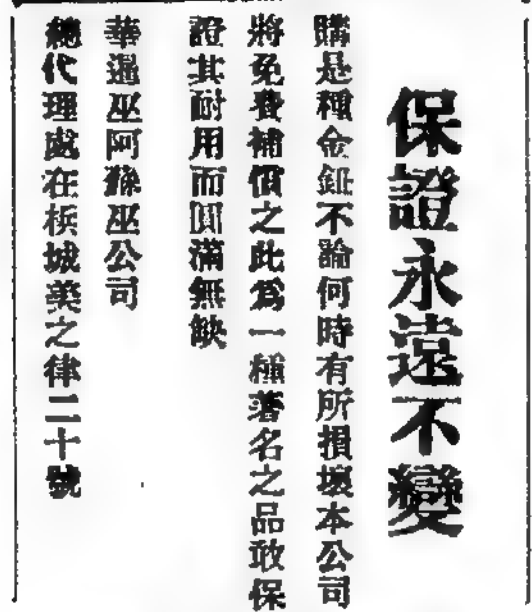 保證永遠不變
購是種金鈕不論何時有所損壞本公司
將免費補償之此爲一種著名之品敢保
證其耐用而圓滿無缺
華過巫阿孫巫公司
總代理處在梹城美之律二十號